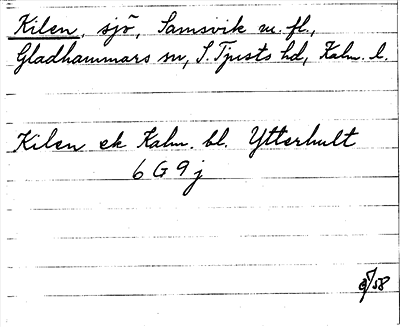 Kilen, sjö, Samsvik m. fl.,
Gladhammars sn, S. Tjusts hd, Kalm. l.
Kilen ek Kalm. bl. Ytterhult
6 G 9 j